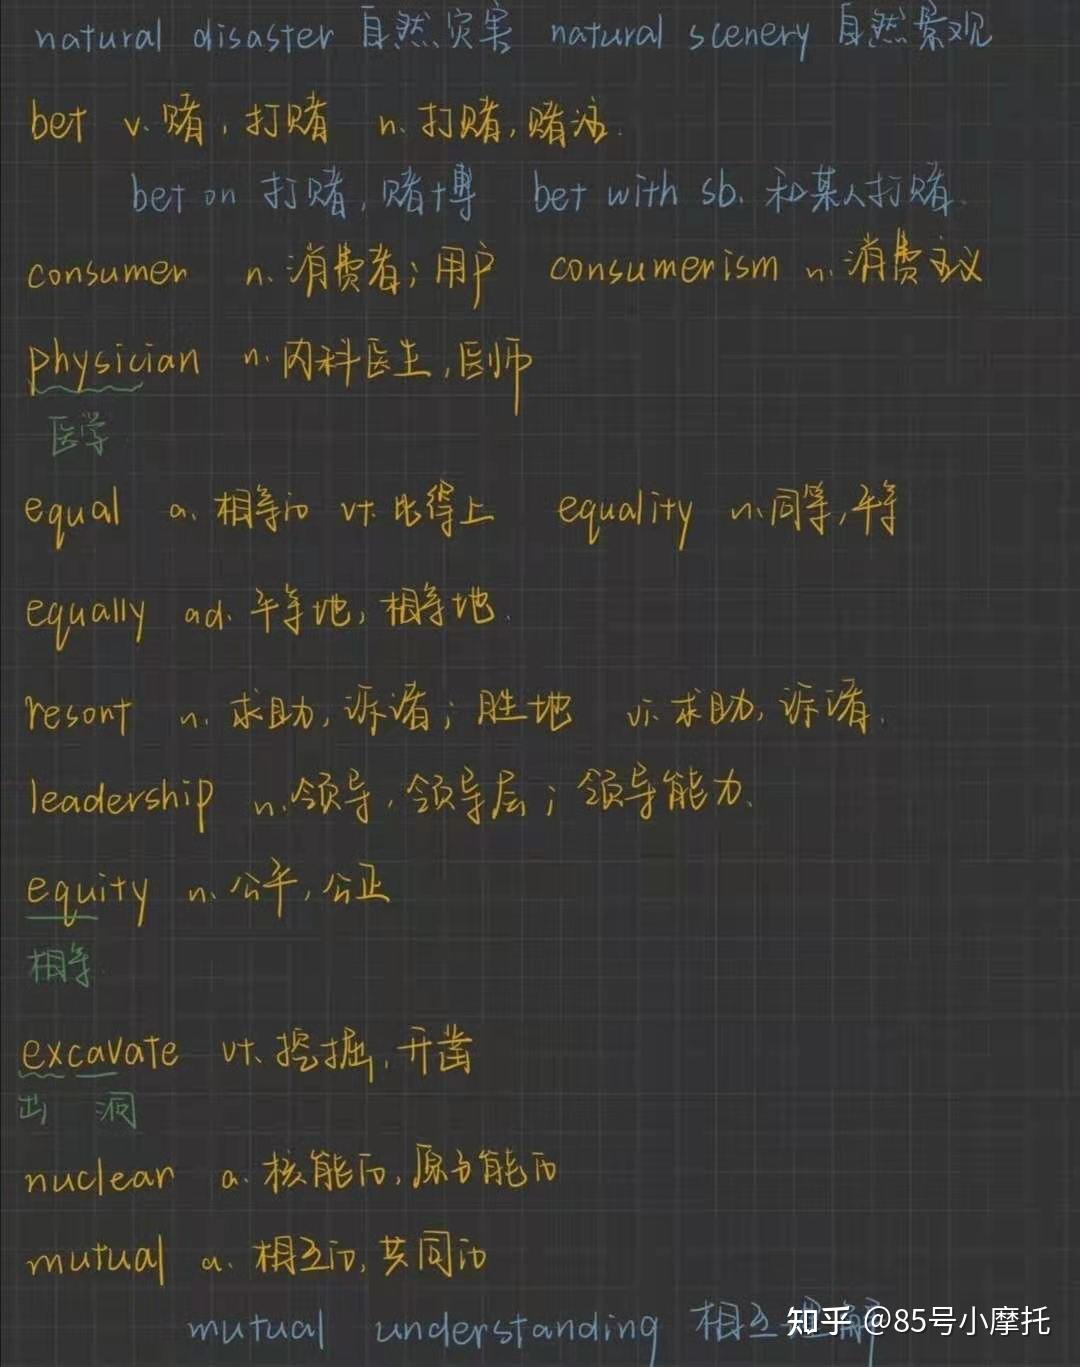 natural disaster 自然灾害 natural scenery 自然景观
bet v. 赌，打赌 n. 打赌，赌注.
bet on 打赌，赌博 bet with sb. 和某人打赌.
consumer n. 消费者；用户 consumerism n. 消费主义
physician n. 内科医生，医师
医学
equal a. 相等的 vt. 比得上 equality n. 同等，平等
equally ad. 平等地，相等地.
resort n. 求助，诉诸；胜地 vi. 求助，诉诸.
leadership n. 领导，领导层；领导能力.
equity n. 公平，公正
相等
excavate vt. 挖掘，开凿
出 洞
nuclear a. 核能的，原子能的
mutual a. 相互的，共同的
mutual understanding 相互理解
知乎 @85号小摩托